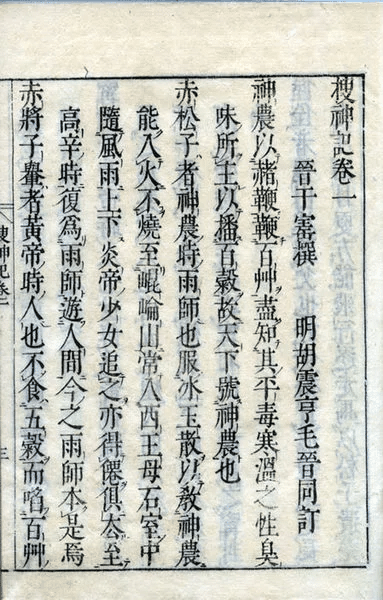 搜神記卷一
晉干寳撰 明胡震亨毛晉同訂
神農以赭鞭鞭百艸盡知其平毒寒溫之性臭
味所主以播百穀故天下號神農也
赤松子者神農時雨師也服冰玉散以敎神農
能入火不燒至崐崘山常入西王母石室中
隨風雨上下炎帝少女追之亦得僊俱去至
高辛時復爲雨師遊人間今之雨師本是焉
赤將子轝者黃帝時人也不食五穀而啗百艸
搜神記卷一